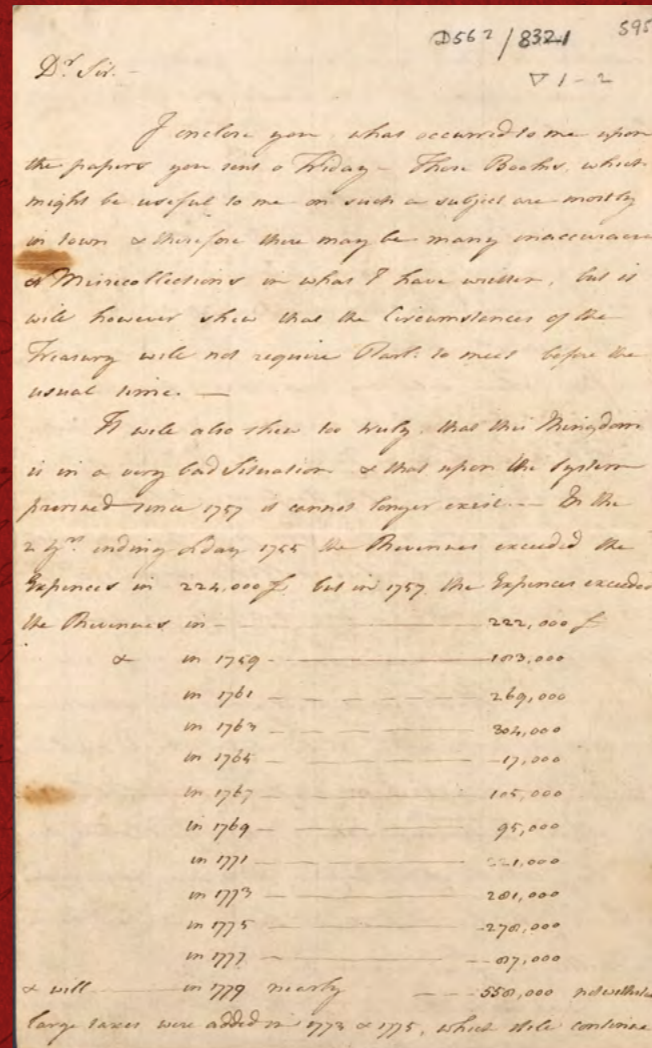 D562/8321 595
▽ 1-2
Dr. Sir. -
I enclose you what occurred to me upon
the papers you sent o Friday - Those Books, which
might be useful to me on such a subject are mostly
in town & therefore there may be many inaccuracies
& Misrecollections in what I have written, but it
will however shew that the Circumstances of the
Treasury will not require Parl: to meet before the
usual time. —
It will also shew too truly, that this Kingdom
is in a very bad Situation & that upon the System
pursued since 1757 it cannot longer exist. — In the
2 yrs. ending Lday 1755 the Revenues exceeded the
Expences in 224,000£ but in 1757 the Expences exceeded
the Revenues in — 222,000£
& in 1759 — 103,000
in 1761 — 269,000
in 1763 — 304,000
in 1765 — 17,000
in 1767 — 105,000
in 1769 — 95,000
in 1771 — 221,000
in 1773 — 281,000
in 1775 — 278,000
in 1777 — 87,000
& will — in 1779 nearly — 558,000 notwithsta
large taxes were added in 1773 & 1775, which still continue